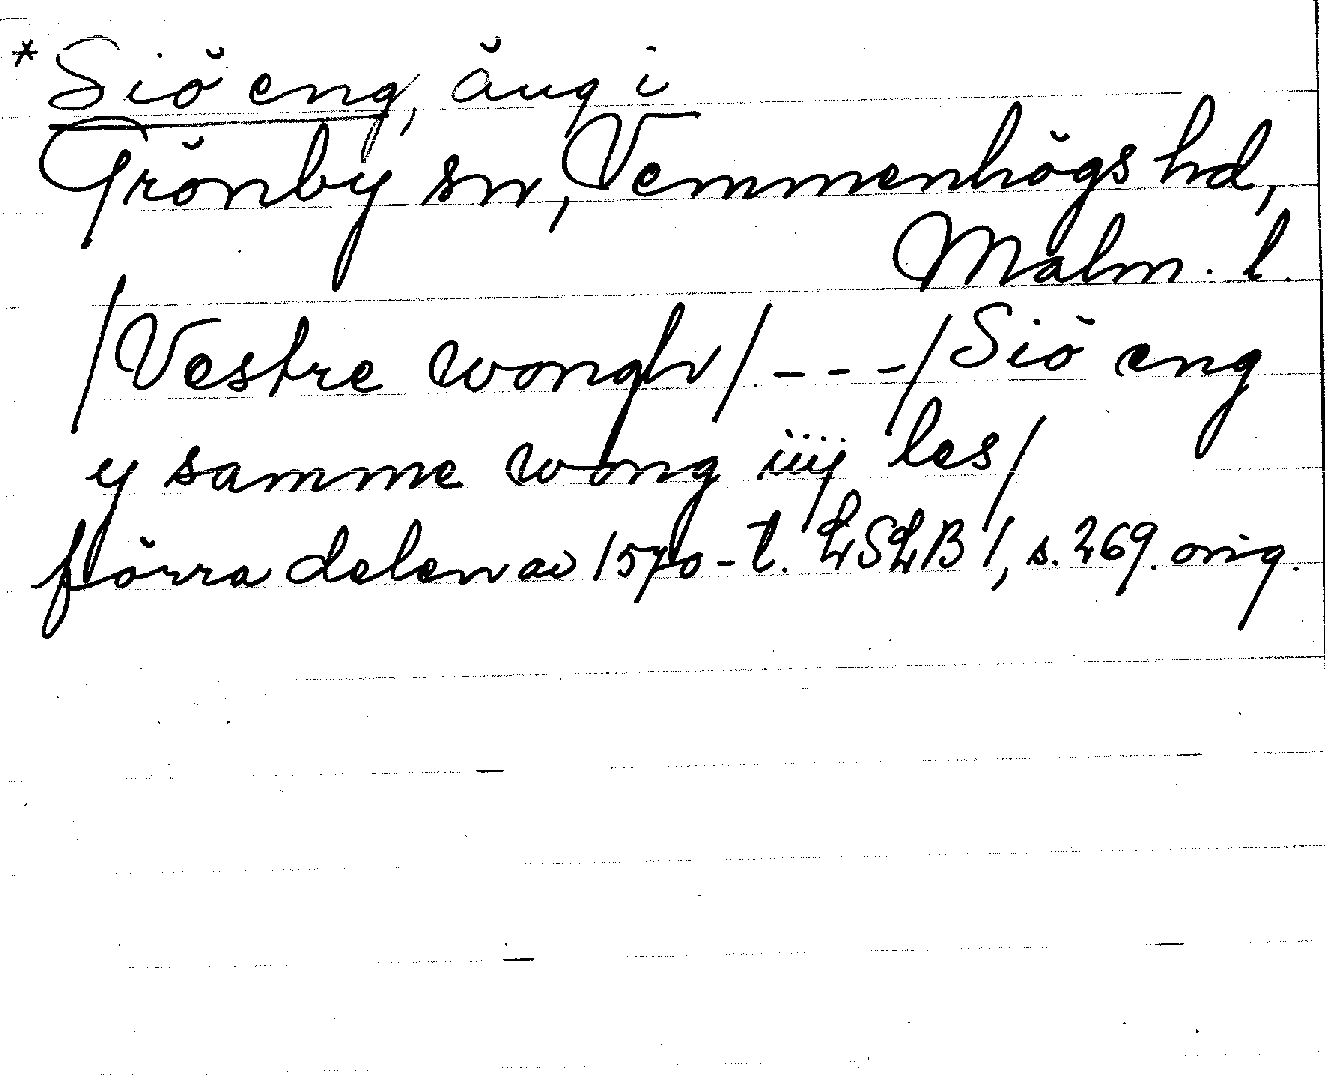 * Siö eng, äng i
Grönby sn, Vemmenhögs hd,
Malm. l.
/Vestre wongh/ - - - / Siö eng
y samme wong iiij les/
förra delen av 1570-t. LSLB 1, s. 269. orig.